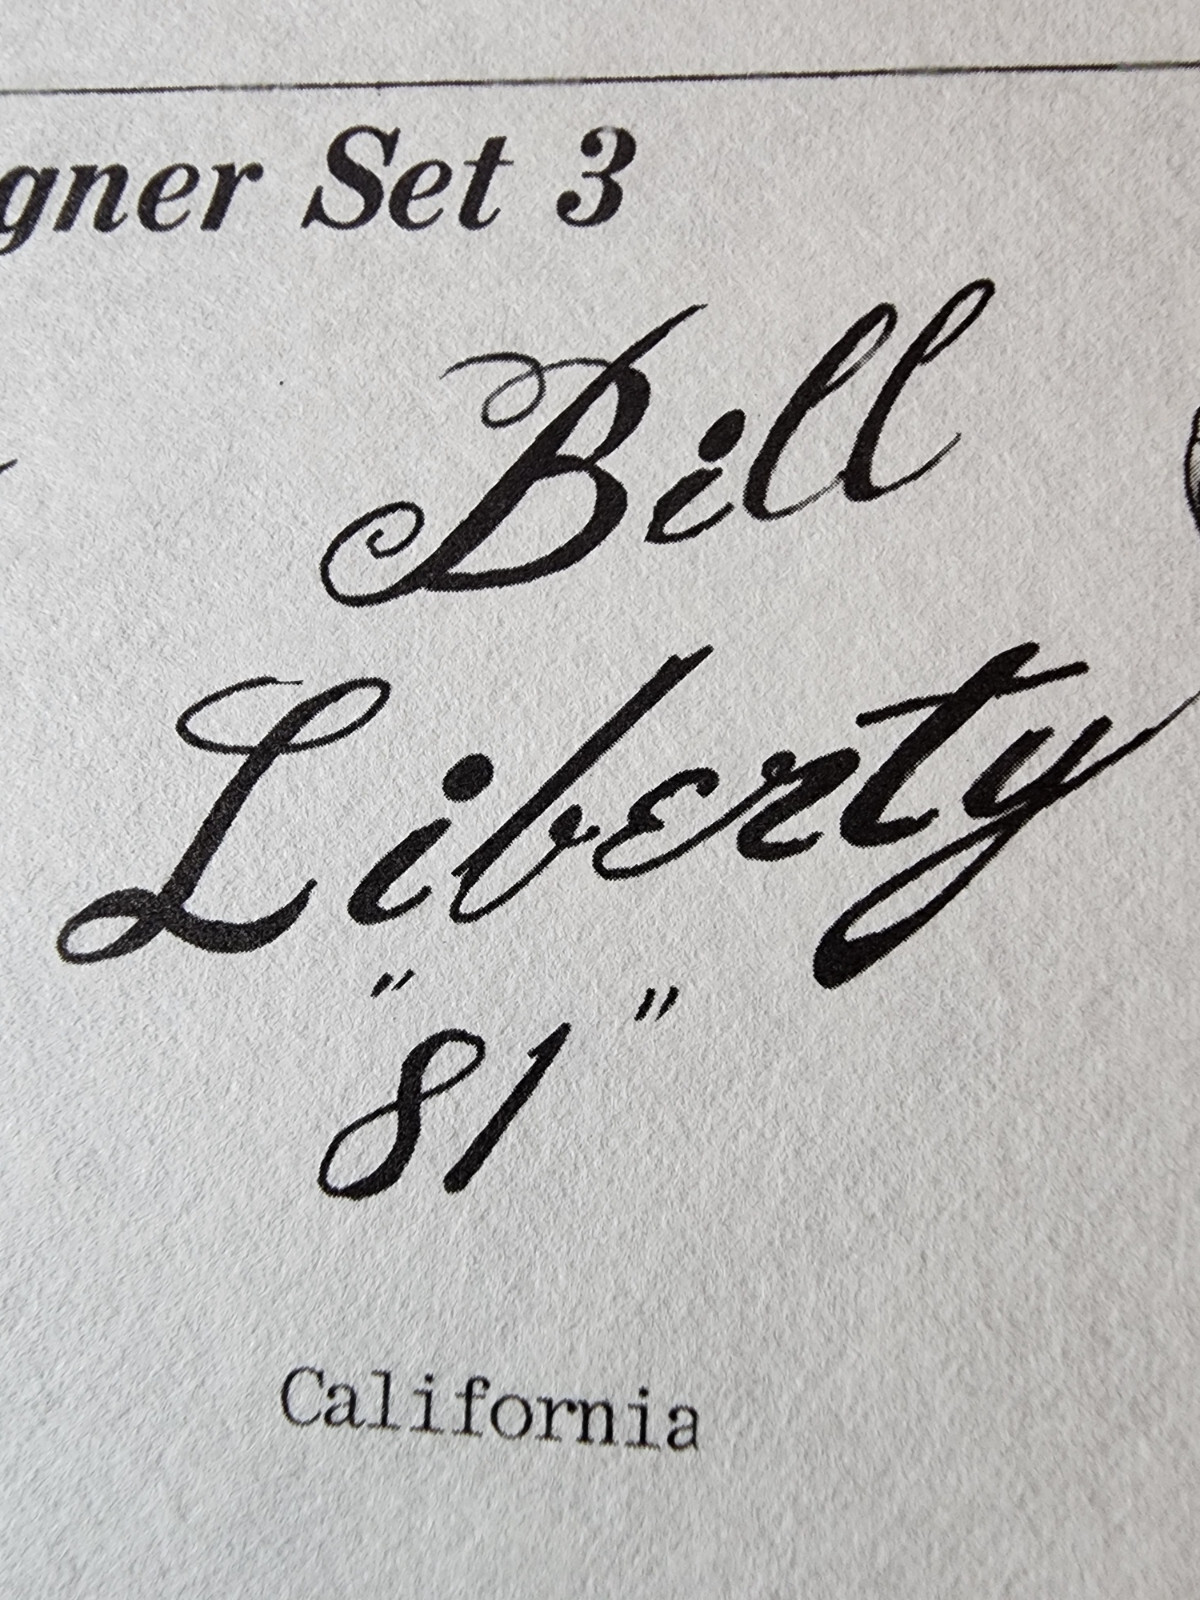 gner Set 3
Bill
Liberty
"81"
California